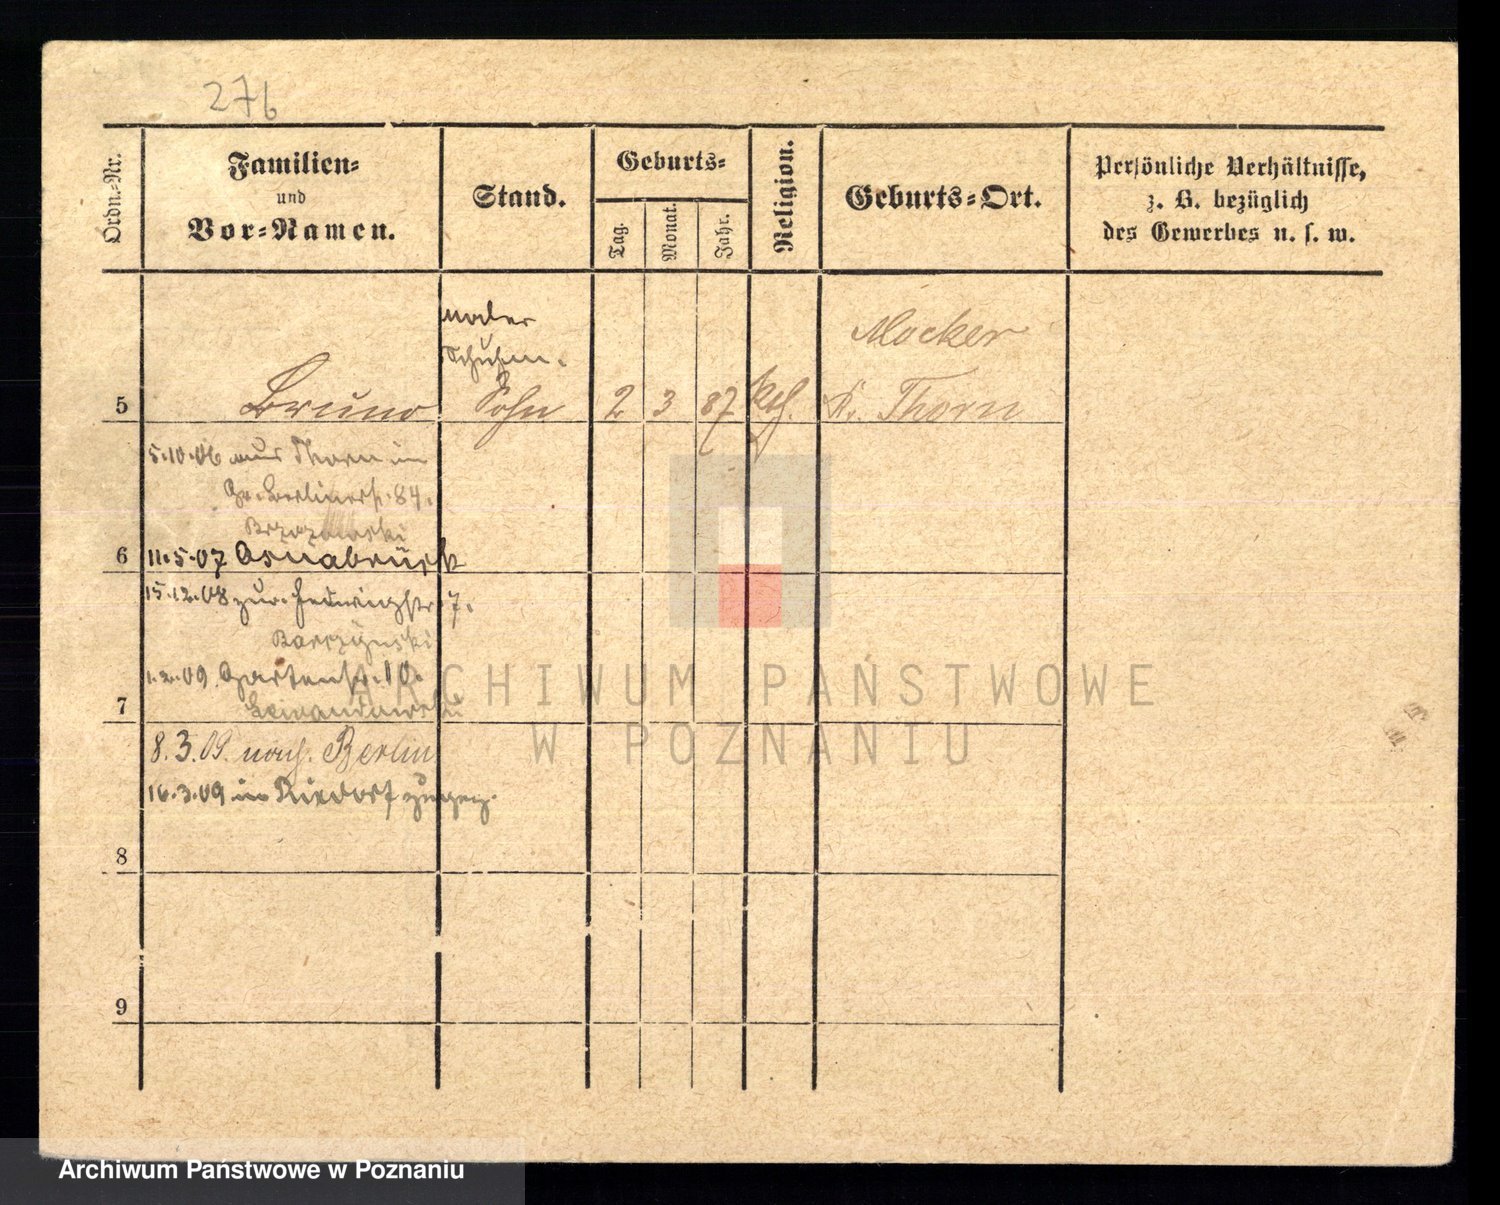 276
Ordn.-Nr.
Familien-
und
Vor-Namen.
Stand.
Geburts-
Tag.
Monat.
Jahr.
Religion.
Geburts-Ort.
Persönliche Verhältnisse,
z. B. bezüglich
des Gewerbes u. s. w.
Maler
Schuhm.
Mocker
5 Bruno Sohn 2 3 87 kath. Kr. Thorn
5.10.06 aus Thorn in
Gr. Berlinerst. 84.
6 11.5.07 Osnabrück
15.12.08 zur. Hedwigstr. 7.
Barczynski
1.2.09. Gartenstr. 10.
7 Lewandowski
8.3.09. nach Berlin
16.3.09 in Rixdorf zugez.
8
9
ARCHIWUM PAŃSTWOWE
W POZNANIU
Archiwum Państwowe w Poznaniu